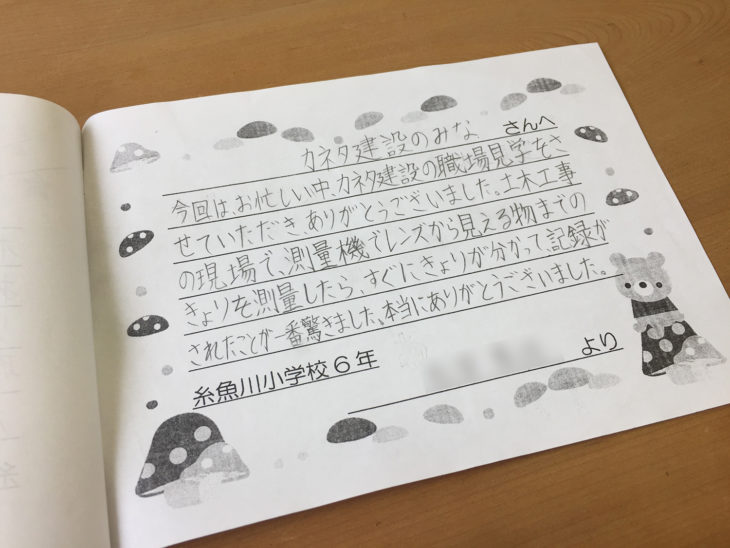 カネタ建設のみな さんへ
今回は、お忙しい中、カネタ建設の職場見学をさ
せていただき、ありがとうございました。土木工事
の現場で、測量機でレンズから見える物までの
きょりを測量したら、すぐにきょりが分かって、記録が
されたことが一番驚きました。本当にありがとうございました。
糸魚川小学校6年
より